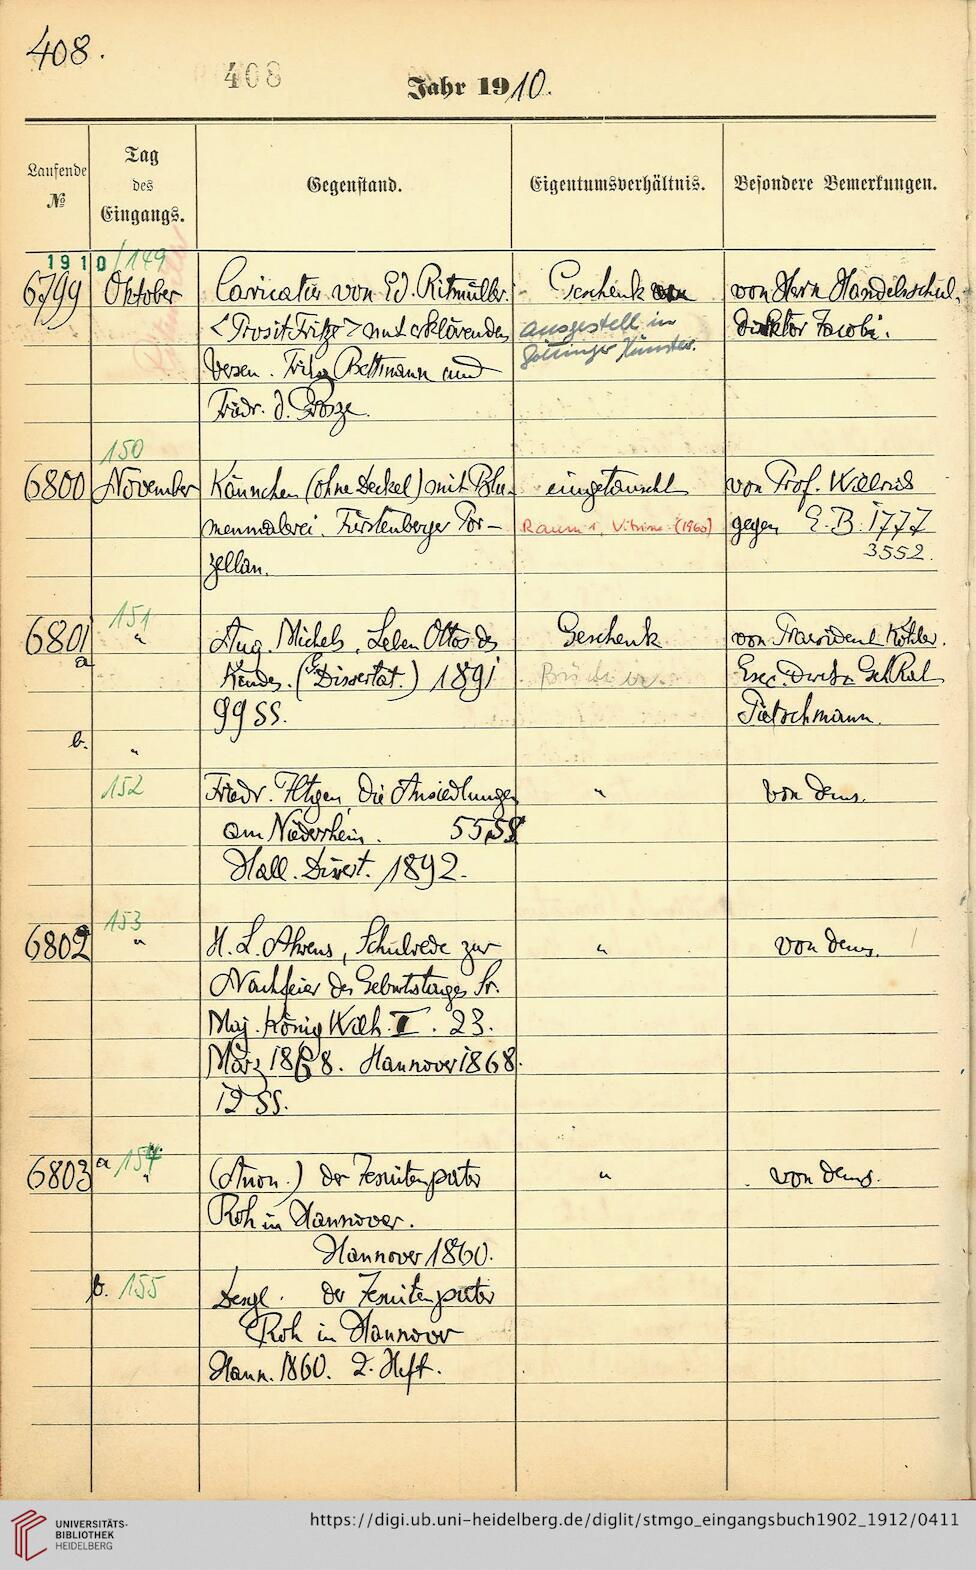 408.
408
Jahr 1910.
Laufende
№
Tag
des
Eingangs.
Gegenstand.
Eigentumsverhältnis.
Besondere Bemerkungen.
1910/149
6799 Oktober Caricatur von Ed. Ritmüller. Geschenk von von Herrn Handelsschul-
<Prosit Fritze> mit erklärenden ausgestellt in direktor Jacobi.
Versen. Fritz Bettmann und Göttinger Künstler.
Friedr. d. Grosze.
150
6800 November Kännchen (ohne Deckel) mit Blu- eingetauscht von Prof. Willrich
menmalerei. Fürstenberger Por- Raum 1, Vitrine (1960) gegen E.B. 1777
zellan. 3552.
151
6801 " Aug. Michels, Leben Ottos des Geschenk von Praesident Köhler.
a Kindes. (Dissertat.) 1891 Bücherei. Geh Rat
99 SS. Pietschmann.
b. "
152 Friedr. Iltgen, Die Ansiedlungen " von dems.
am Niederrhein. 55 SS
Hall. Dissert. 1892.
153
6802 " H. L. Ahrens, Schulrede zur " von dems.
Nachfeier des Geburtstages Sr.
Maj. König Wilh. I. 23.
März 1868. Hannover 1868.
12 SS.
6803 a 154 " (Anon.) Der Jesuitenpater " von dems.
Roh in Hannover.
Hannover 1860.
b. 155 Desgl. Der Jesuitenpater
Roh in Hannover
Hann. 1860. 2. Heft.
UNIVERSITÄTS-
BIBLIOTHEK
HEIDELBERG
https://digi.ub.uni-heidelberg.de/diglit/stmgo_eingangsbuch1902_1912/0411